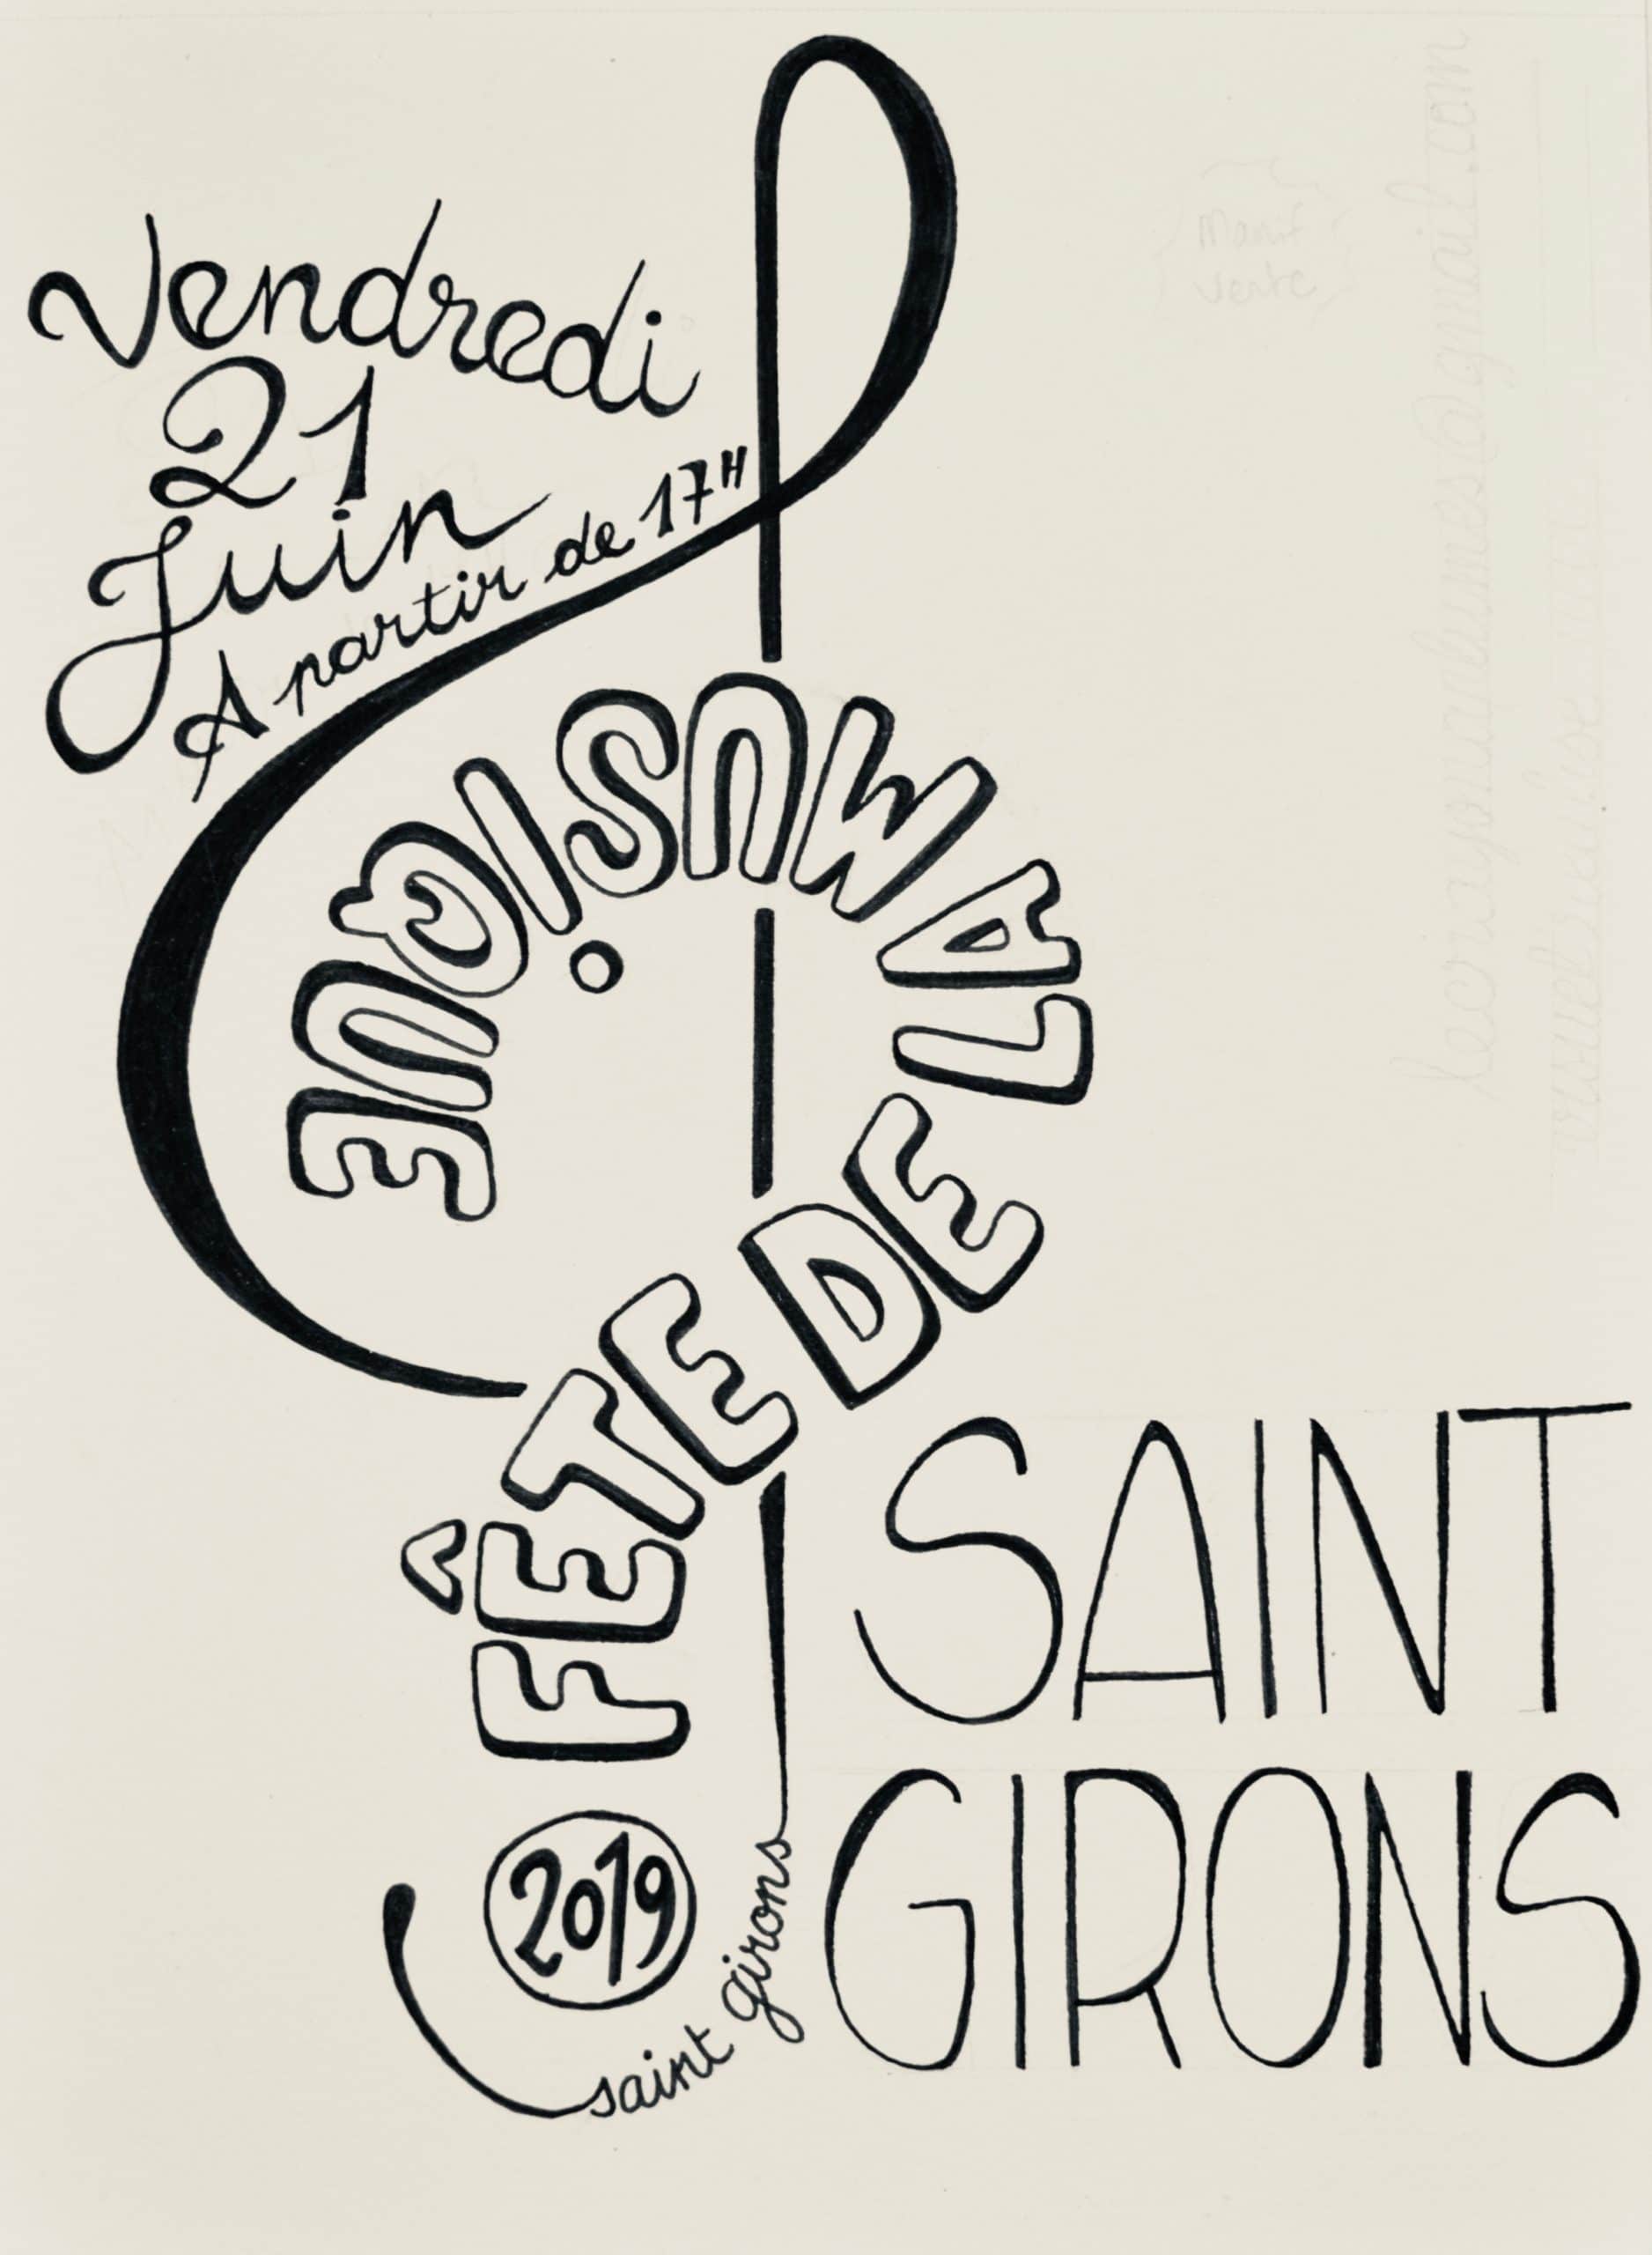 Vendredi
21
Juin
A partir de 17H
FÊTE DE LA MUSIQUE
2019
saint girons
SAINT
GIRONS
Manif
verte